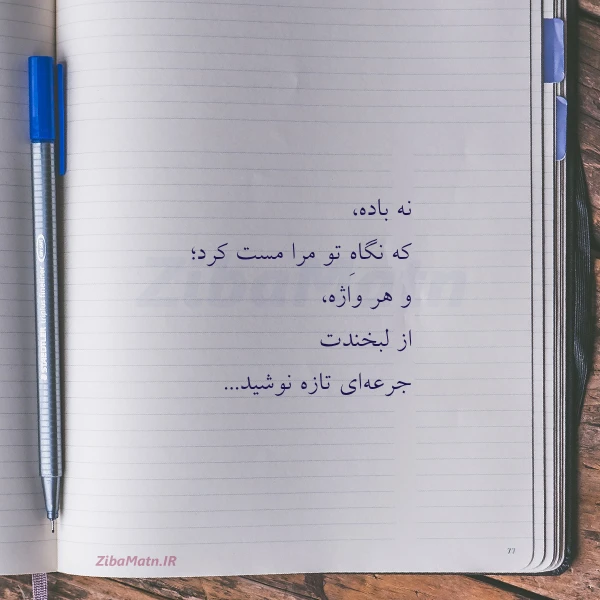 نه باده،
که نگاهِ تو مرا مست کرد؛
و هر واژه،
از لبخندت
جرعه‌ای تازه نوشید...
ZibaMatn
ZibaMatn.IR
77